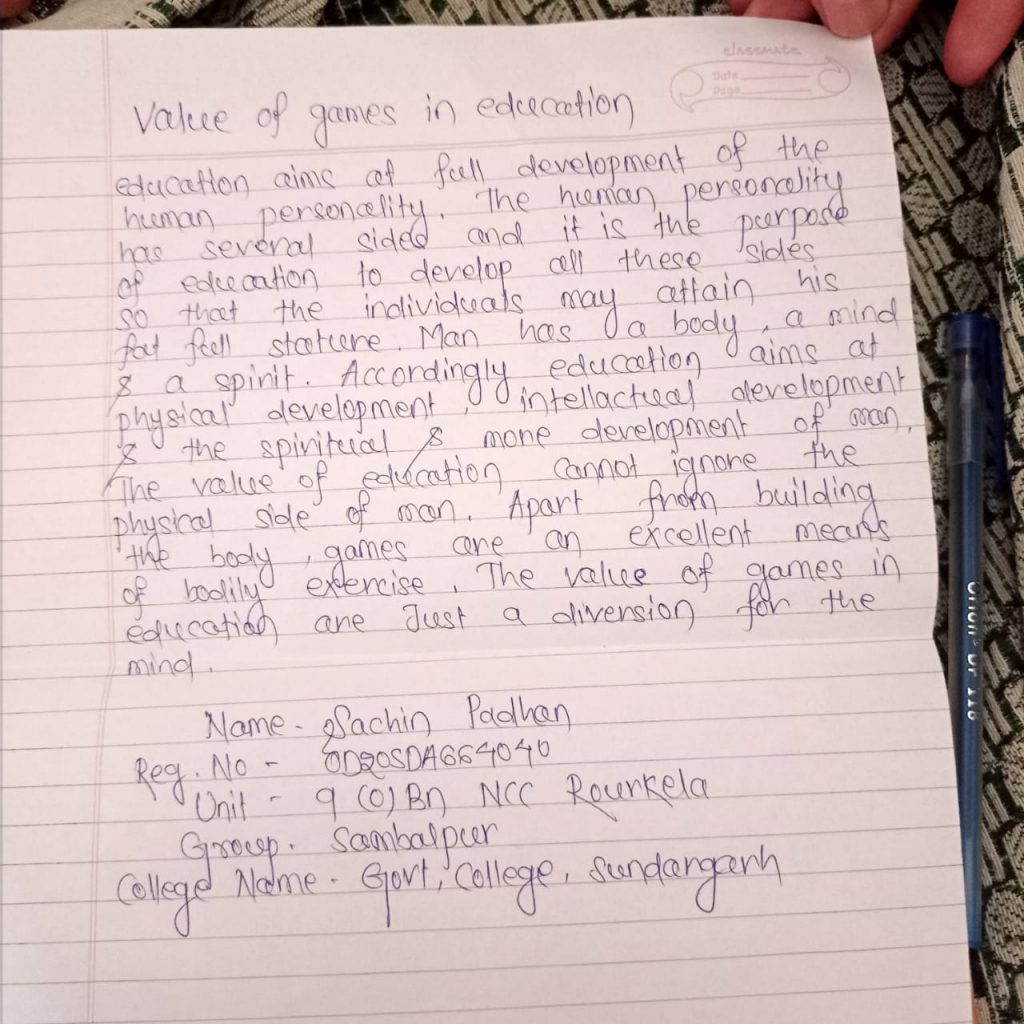 classmate
Date
Page
Value of games in education
education aims at full development of the
human personality. The human personality
has several sided and it is the purpose
of education to develop all these sides
so that the individuals may attain his
fat full stature. Man has a body, a mind
& a spirit. Accordingly education aims at
physical development, intellactual development
& the spiritual & more development of man.
The value of education cannot ignore the
physical side of man. Apart from building
the body, games are an excellent means
of bodily exercise. The value of games in
education are Just a diversion for the
mind.
Name - Sachin Padhan
Reg. No - OD20SDA664040
Unit - 9 (O) Bn NCC Rourkela
Group. Sambalpur
College Name - Govt, College, Sundargarh